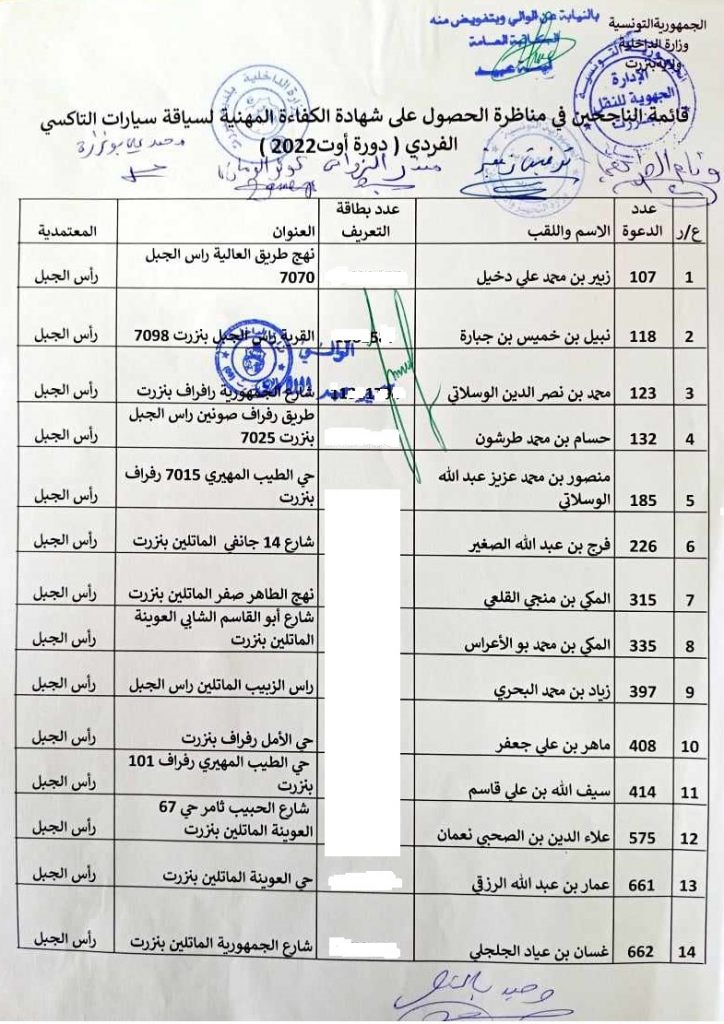 الجمهورية التونسية
وزارة الداخلية
ولاية بنزرت
بالنيابة عن الوالي وبتفويض منه
الإدارة
الجهوية للنقل
قائمة الناجحين في مناظرة الحصول على شهادة الكفاءة المهنية لسياقة سيارات التاكسي
الفردي ( دورة أوت2022 )
ع/ر عدد الدعوة الاسم واللقب عدد بطاقة التعريف العنوان المعتمدية
1 107 زبير بن محمد علي دخيل نهج طريق العالية راس الجبل 7070 رأس الجبل
2 118 نبيل بن خميس بن جبارة القرية راس الجبل بنزرت 7098 رأس الجبل
الوالي
3 123 محمد بن نصر الدين الوسلاتي شارع الجمهورية رافراف بنزرت رأس الجبل
4 132 حسام بن محمد طرشون طريق رفراف صونين راس الجبل بنزرت 7025 رأس الجبل
5 185 منصور بن محمد عزيز عبد الله الوسلاتي حي الطيب المهيري 7015 رفراف بنزرت رأس الجبل
6 226 فرج بن عبد الله الصغير شارع 14 جانفي الماتلين بنزرت رأس الجبل
7 315 المكي بن منجي القلعي نهج الطاهر صفر الماتلين بنزرت رأس الجبل
8 335 المكي بن محمد بو الأعراس شارع أبو القاسم الشابي العوينة الماتلين بنزرت رأس الجبل
9 397 زياد بن محمد البحري راس الزبيب الماتلين راس الجبل رأس الجبل
10 408 ماهر بن علي جعفر حي الأمل رفراف بنزرت رأس الجبل
11 414 سيف الله بن علي قاسم حي الطيب المهيري رفراف 101 بنزرت رأس الجبل
12 575 علاء الدين بن الصحبي نعمان شارع الحبيب ثامر حي 67 العوينة الماتلين بنزرت رأس الجبل
13 661 عمار بن عبد الله الرزقي حي العوينة الماتلين بنزرت رأس الجبل
14 662 غسان بن عياد الجلجلي شارع الجمهورية الماتلين بنزرت رأس الجبل